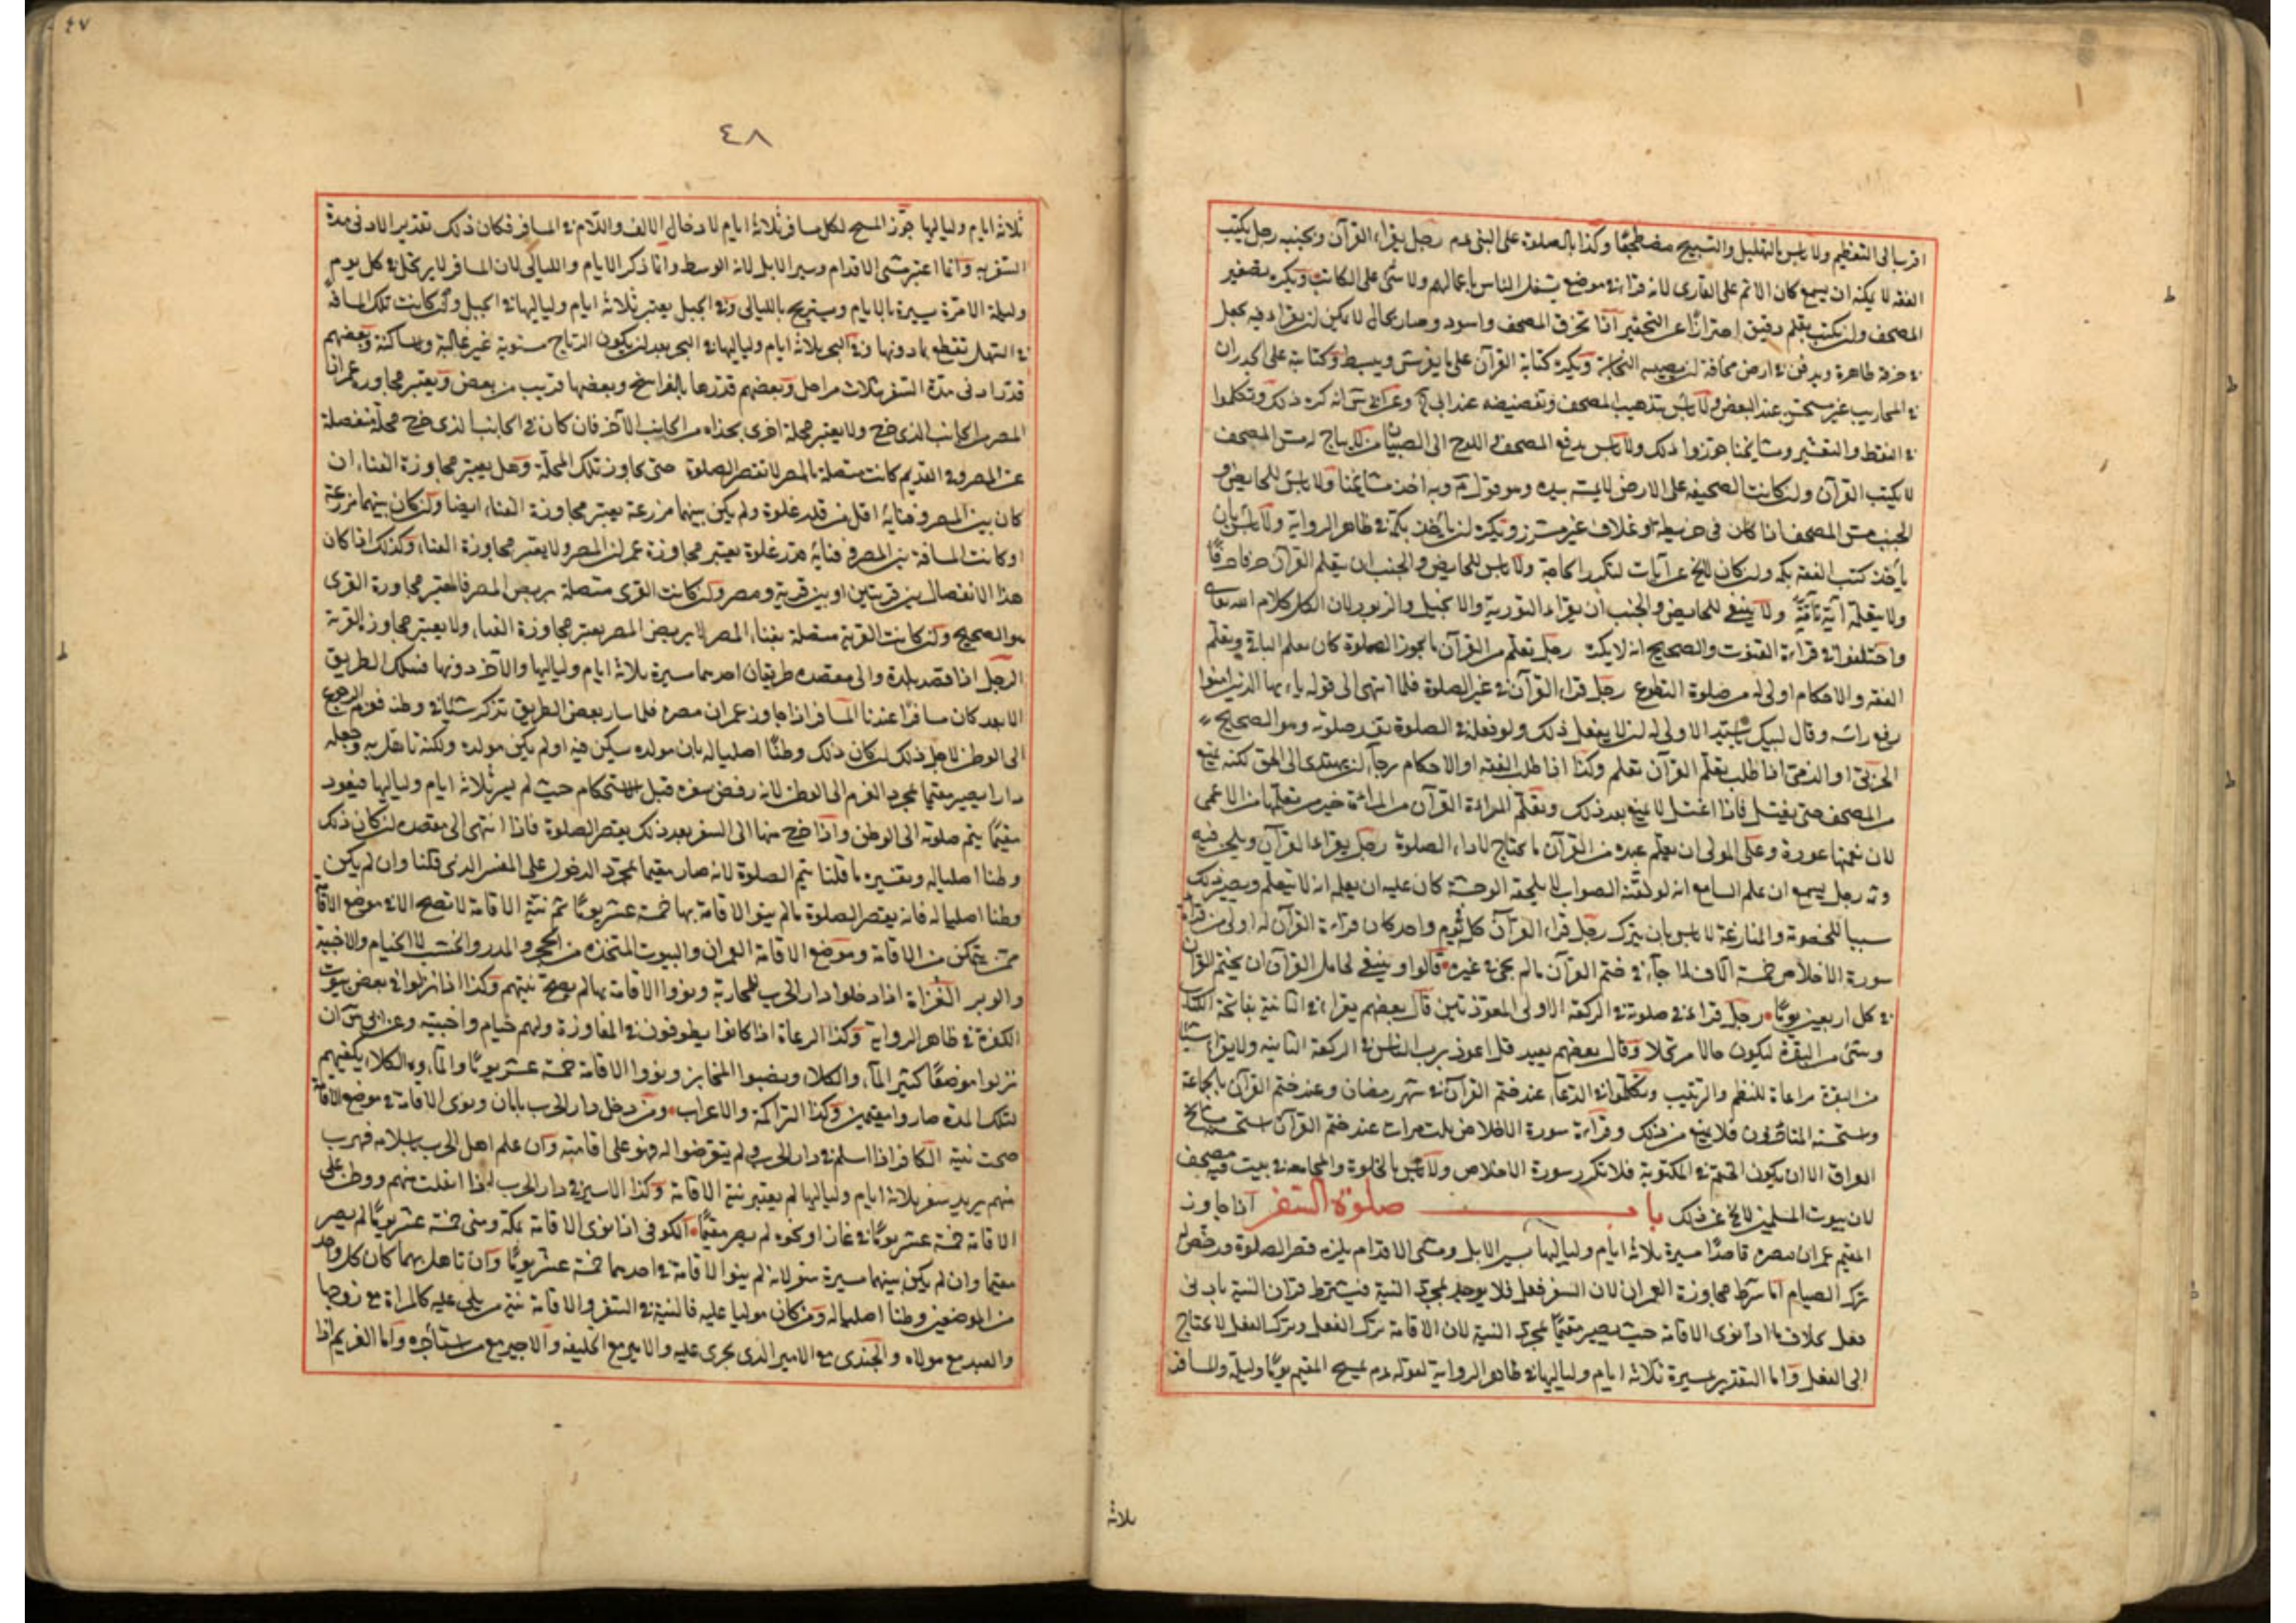 اقرب الى التعظيم ولا بأس بالتهليل والتسبيح مضطجعًا وكذا بالصلوة على النبى عم رجل يقراء القرآن وبجنبه رجل يكتب
الفقه لا يمكنه ان يسمع كان الاثم على القارى لانه قراء فى موضع يشغل الناس باعمالهم ولا شئ على الكاتب ويكره تصغير
المصحف وان يكتب بقلم دقيق احترازًا عن التحقير اذا تخرق المصحف واسود وصار بحال لا يمكن ان يقراء فيه يجعل
فى خرقة طاهرة ويدفن فى ارض مخافة ان يصيبه النجاسة ويكره كتابة القرآن على ما يفرش ويبسط وكتابته على الجدران
فى المحاريب غير مستحسن عند البعض ولا بأس بتذهيب المصحف وتفضيضه عند ابى ح وعن ابى س انه كره ذلك وتكلموا
فى النقط والتعشير ومشايخنا جوزوا ذلك ولا بأس بدفع المصحف او اللوح الى الصبيان لا يباح له مس المصحف
لا يكتب القرآن وان كانت الصحيفة على الارض لا يمسه بيده وهو قول م وبه اخذ مشايخنا ولا بأس للحايض و
الجنب مس المصحف اذا كان فى خريطة او غلاف غير مشرز ويكره ان يأخذه بكمه فى ظاهر الرواية ولا بأس بان
يأخذ كتب الفقه بكمه وان كان لا يخ عن آيات لتكرر الحاجة ولا بأس للحايض والجنب ان يتعلم القرآن حرفا حرفًا
ولا يتعلم آية تامة ولا ينبغى للحايض والجنب ان يقراء التورية والانجيل والزبور لان الكل كلام الله تعالى
واختلفوا فى قراءة القنوت والصحيح انه لا يكره رجل تعلم من القرآن ما يجوز الصلوة كان تعلم الباقى وتعلم
الفقه والاحكام اولى له من صلوة التطوع رجل قراء القرآن فى غير الصلوة فلما انتهى الى قوله يا ايها الذين امنوا
رفع راسه وقال لبيك سيدى الاولى له ان لا يفعل ذلك ولو فعل فى الصلوة تفسد صلوته وهو الصحيح
الحربى او الذمى اذا طلب تعلم القرآن تعلم وكذا اذا طلب الفقه او الاحكام رجاء ان يهتدى الى الحق لكنه يمنع
من المصحف حتى يغتسل فاذا اغتسل لا يمنع بعد ذلك وتعلم المراءة القرآن من المراءة خير من تعلمها من الاعمى
لان نغمتها عورة وعلى المولى ان يعلم عبده من القرآن ما يحتاج لاداء الصلوة رجل يقراء القرآن ويلحن فيه
وثم رجل يسمع ان علم السامع انه لو لقنه الصواب لا يلحقه الوحشة كان عليه ان يعلم انه لا يتعلم ويصير ذلك
سببا للخصومة والمنازعة لا بأس بان يترك رجل قراء القرآن كل يوم واحد كان قراءة القرآن له اولى من قراءة
سورة الاخلاص خمسة آلاف لما جاء فى ختم القرآن ما لم يجئ فى غيره قالوا وينبغى لحامل القرآن ان يختم القرآن
فى كل اربعين يومًا رجل قراء فى صلوته فى الركعة الاولى المعوذتين قال بعضهم يقراء فى الثانية بفاتحة الكتاب
وشئ من البقرة ليكون حالا مرتحلا وقال بعضهم يعيد قل اعوذ برب الناس فى الركعة الثانية ولا يقراء شيئا
من البقرة مراعاة للنظم والترتيب وتكلموا فى الدعاء عند ختم القرآن فى شهر رمضان وعند ختم القرآن بالجماعة
واستحسنه المتأخرون فلا يمنع من ذلك وقراءة سورة الاخلاص ثلث مرات عند ختم القرآن استحسنه مشايخ
العراق الا ان يكون الختم فى المكتوبة فلا تكرر سورة الاخلاص ولا بأس بالخلوة والمجامعة فى بيت فيه مصحف
لان بيوت المسلمين لا يخ عن ذلك باب صلوة السفر اذا جاوز
المقيم عمران مصره قاصدًا مسيرة ثلاثة ايام ولياليها بسير الابل ومشى الاقدام يلزمه قصر الصلوة ورخص له
ترك الصيام اما شرط مجاوزة العمران لان السفر فعل فلا يوجد بمجرد النية فيشترط قران النية بادنى
فعل بخلاف ما اذا نوى الاقامة حيث يصير مقيمًا بمجرد النية لان الاقامة ترك الفعل وترك الفعل لا يحتاج
الى الفعل واما التقدير بمسيرة ثلاثة ايام ولياليها فى ظاهر الرواية لقوله عم يمسح المقيم يومًا وليلة والمسافر
ثلاثة
٤٧
٤٨
ثلاثة ايام ولياليها جوز المسح لكل مسافر ثلاثة ايام لادخال الالف واللام فى المسافر فكان ذلك تقدير الادنى مدة
السفر به وانما اعتبر مشى الاقدام وسير الابل لانه الوسط وانما ذكر الايام والليالى لان المسافر لا يرتحل فى كل يوم
وليلة الا مرة يسيرة بالايام ويستريح بالليالى وفى الجبل يعتبر ثلاثة ايام ولياليها فى الجبل وان كانت تلك المسافة
فى السهل تقطع بما دونها وفى البحر ثلاثة ايام ولياليها فى البحر بعد ان يكون الرياح مستوية غير غالبة ولا ساكنة وبعضهم
قدر ادنى مدة السفر بثلاث مراحل وبعضهم قدرها بالفراسخ وبعضها قريب من بعض ويعتبر مجاوزة عمران
المصر من الجانب الذى خرج ولا يعتبر محلة اخرى بحذاه من الجانب الآخر فان كان فى الجانب الذى خرج محلة منفصلة
عن المصر وفى القديم كانت متصلة بالمصر لا تقصر الصلوة حتى يجاوز تلك المحلة وهل يعتبر مجاوزة الفناء ان
كان بين المصر وفنايه اقل من قدر غلوة ولم يكن بينهما مزرعة يعتبر مجاوزة الفناء ايضا وان كان بينهما مزرعة
او كانت المسافة بين المصر وفنايه قدر غلوة يعتبر مجاوزة عمران المصر ولا يعتبر مجاوزة الفناء وكذلك اذا كان
هذا الانفصال بين قريتين او بين قرية ومصر وان كانت القرى متصلة بربض المصر فالمعتبر مجاوزة القرى
هو الصحيح وان كانت القرية متصلة بفناء المصر لا بربض المصر يعتبر مجاوزة الفناء ولا يعتبر مجاوزة القرية
الرجل اذا قصد بلدة والى مقصده طريقان احدهما مسيرة ثلاثة ايام ولياليها والآخر دونها فسلك الطريق
الابعد كان مسافرًا عندنا المسافر اذا جاوز عمران مصره فلما سار بعض الطريق تذكر شيئا فى وطنه فعزم الرجوع
الى الوطن لاجل ذلك ان كان ذلك وطنًا اصليا له بان مولده سكن فيه او لم يكن مولده ولكنه تاهل به وجعله
دارا يصير مقيما بمجرد العزم الى الوطن لانه رفض سفره قبل الاستحكام حيث لم يسر ثلاثة ايام ولياليها فيعود
مقيمًا يتم صلوته الى الوطن واذا خرج منها الى السفر بعد ذلك يقصر الصلوة فاذا انتهى الى مقصده ان كان ذلك
وطنا اصليا له وتفسيره ما قلنا يتم الصلوة لانه صار مقيما بمجرد الدخول على المفسر الذى قلنا وان لم يكن
وطنا اصليا له فانه يقصر الصلوة ما لم ينو الاقامة بها خمسة عشر يومًا ثم نية الاقامة لا تصح الا فى موضع الاقامة
ممن يتمكن من الاقامة وموضع الاقامة العمران والبيوت المتخذة من الحجر والمدر والخشب لا الخيام والاخبية
والوبر الغزاة اذا دخلوا دار الحرب للمحاربة ونووا الاقامة بها لم يصح نيتهم وكذا اذا نزلوا فى بعض بيوت
الكفرة فى ظاهر الرواية وكذا الرعاة اذا كانوا يطوفون فى المفاوزة ولهم خيام واخبية وعن ابى س ان
نزلوا موضعًا كثير الماء والكلاء ونصبوا المخابز ونووا الاقامة خمسة عشر يومًا والماء والكلاء يكفيهم
لتلك المدة صاروا مقيمين وكذا التراكمة والاعراب ومن دخل دار الحرب بامان ونوى الاقامة فى موضع الاقامة
صحت نيته الكافر اذا اسلم فى دار الحرب ولم يتعرضوا له فهو على اقامته وان علم اهل الحرب باسلامه فهرب
منهم يريد سفر ثلاثة ايام ولياليها لم يعتبر نية الاقامة وكذا الاسير فى دار الحرب اذا انفلت منهم ووطن على
الاقامة خمسة عشر يومًا فى غار او نحوه لم يصر مقيمًا الكوفى اذا نوى الاقامة بمكة ومنى خمسة عشر يومًا لم يصر
مقيما وان لم يكن بينهما مسيرة سفر لانه لم ينو الاقامة فى احدهما خمسة عشر يومًا وان تاهل بهما كان كل واحد
من الموضعين وطنا اصليا له ومن كان موليا عليه فالنية فى السفر والاقامة نية من يلى عليه كالمراة مع زوجها
والعبد مع مولاه والجندى مع الامير الذى يجرى عليه والامير مع الخليفة والاجير مع من استأجره واما الغريم اذا